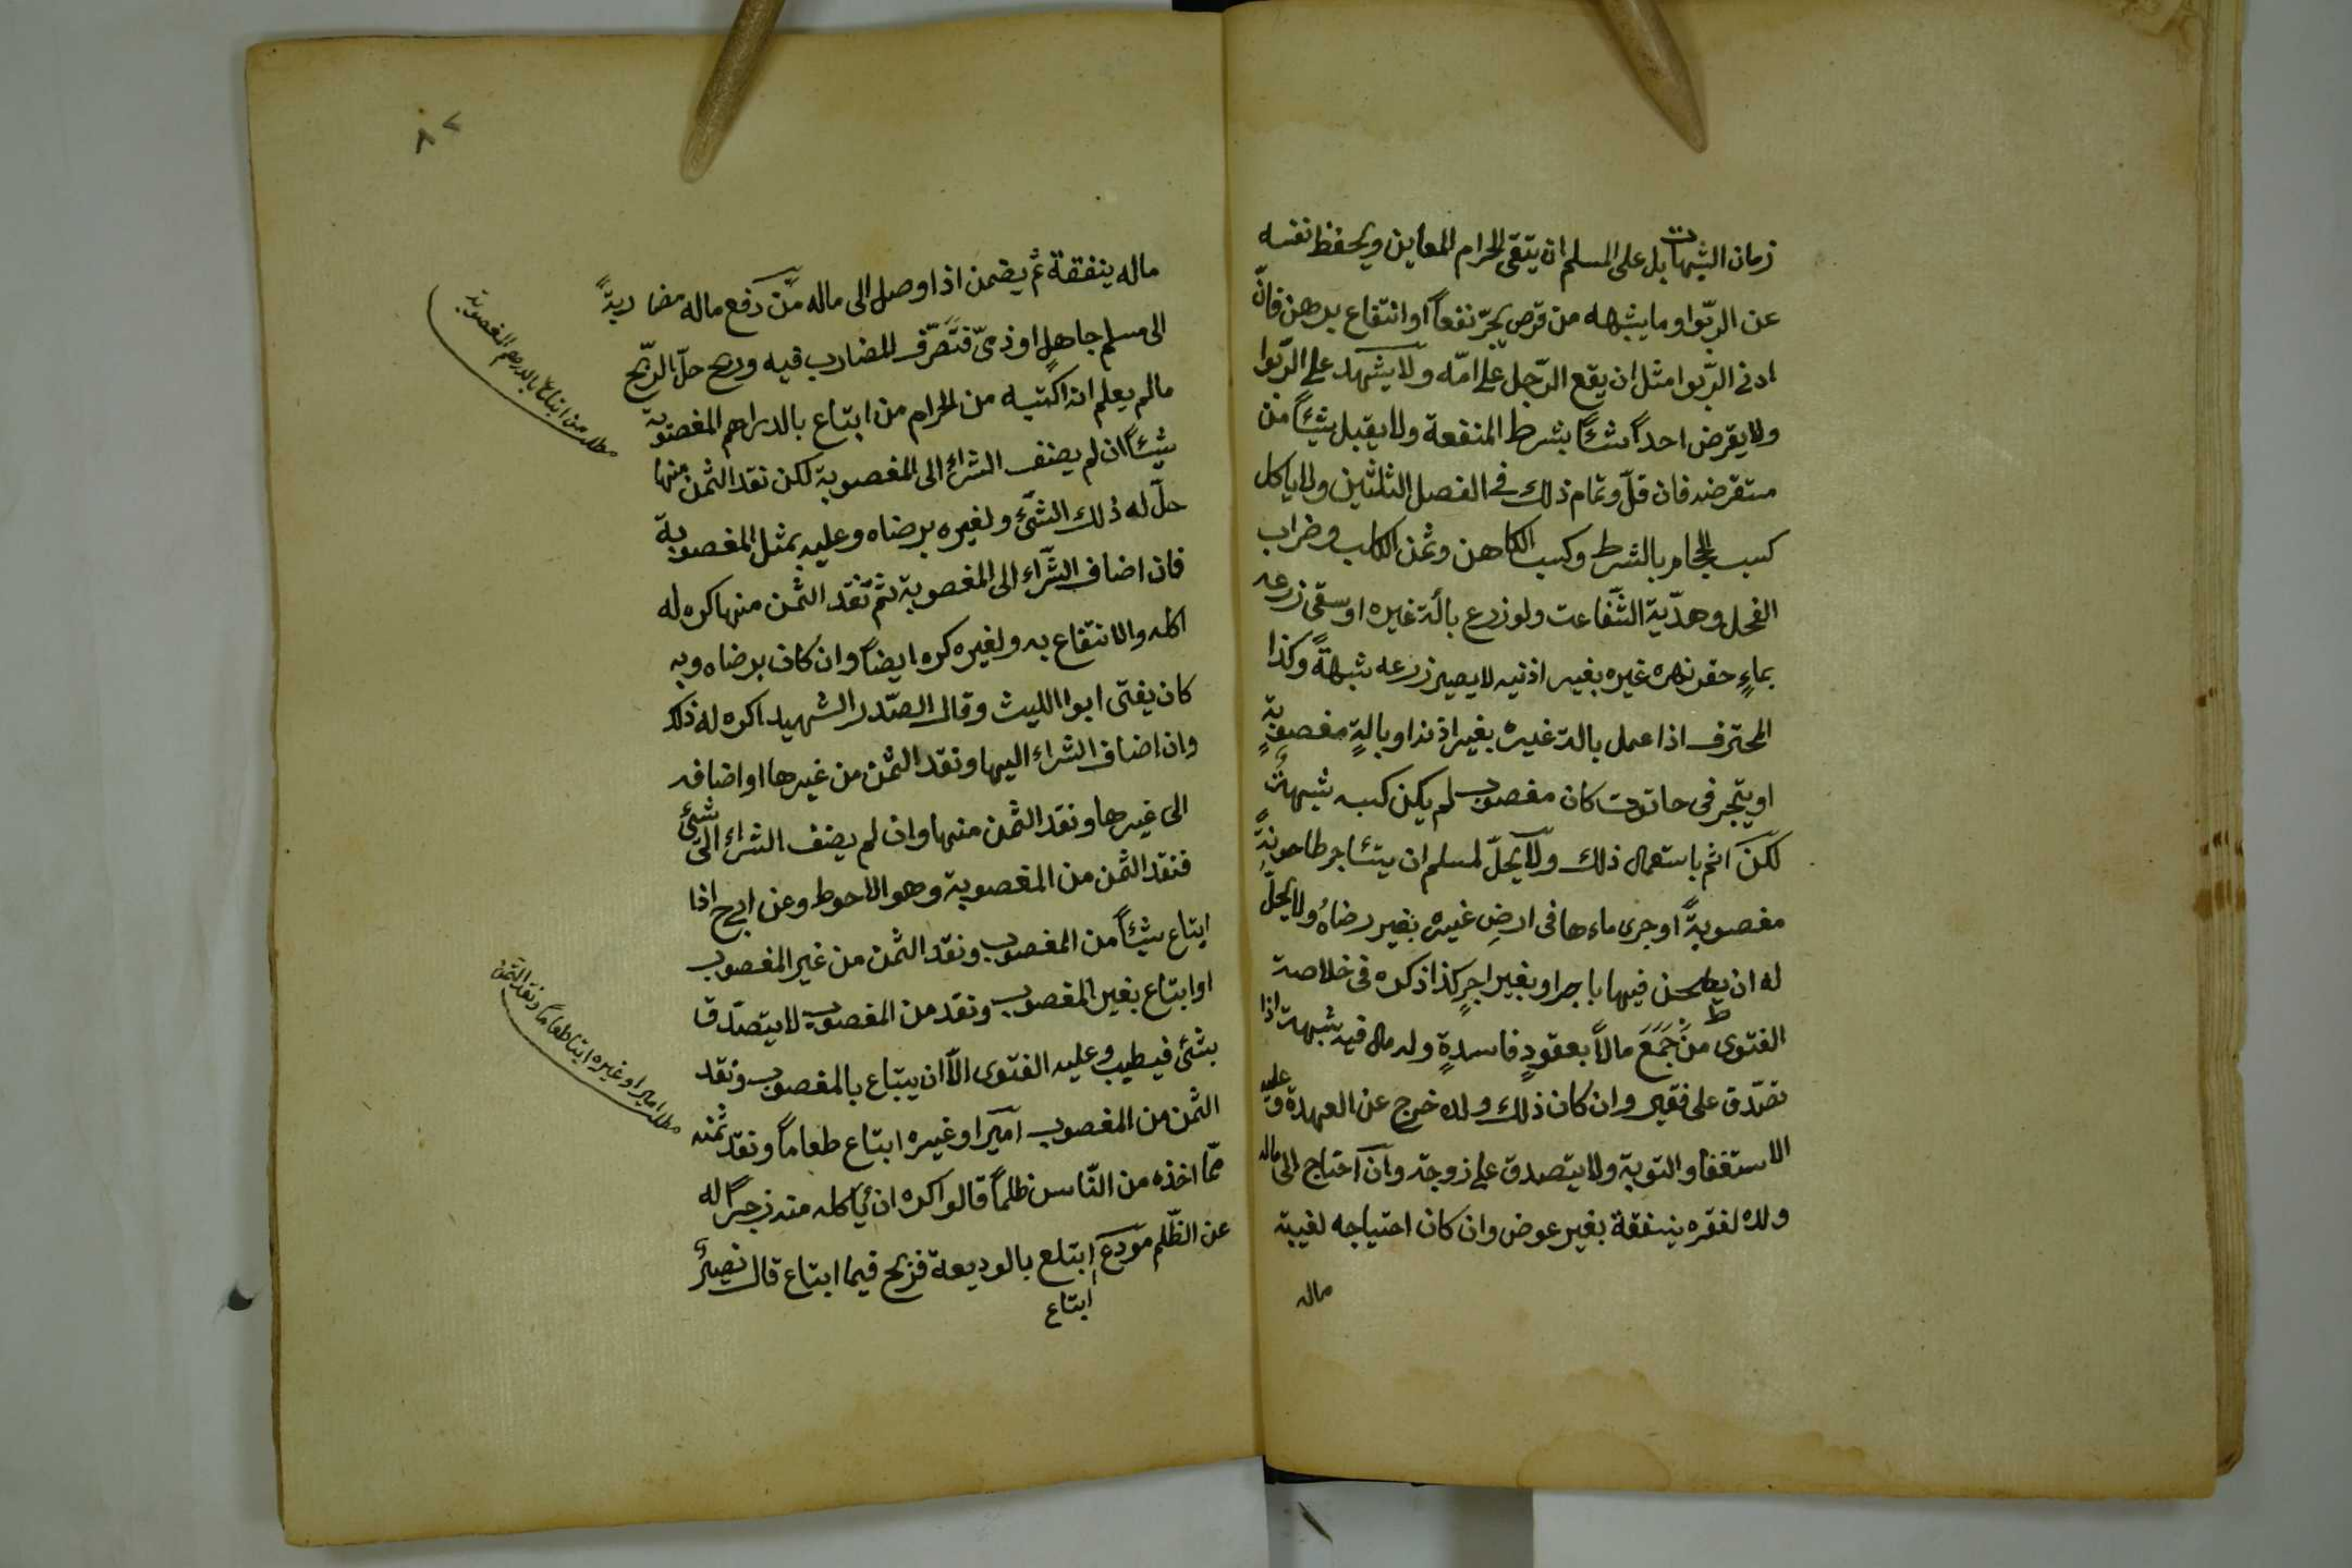 زمان الشبهات بل على المسلم ان يتقى الحرام المعاين ويحفظ نفسه
عن الربّوا وما يشبهه من قرض يجرّ نفعاً او انتفاع برهن فانّ
ادنى الرّبوا مثل ان يقع الرّجل على امّه ولا يشهد على الرّبوا
ولا يقرض احداً شئاً بشرط المنفعة ولا يقبل شيئاً من
مستقرضه فان قلّ وتمام ذلك فى الفصل الثلثين ولا ياكل
كسب الحجام بالشرط وكسب الكاهن وثمن الكلب وضراب
الفحل وهدّية الشّفاعت ولو زرع بالة غيره او سقى زرعه
بماءٍ حفر نهره غيره بغير اذنيه لا يصير زرعه شبهةً وكذا
المحترف اذا عمل بالة غيره بغير اذنه او بالةٍ مغصوبةٍ
او يتجر فى حانوت كان مغصوب لم يكن كسبه شبهةً
لكنّ اثم باستعمال ذلك ولا يحلّ لمسلم ان يستئاجر طاحونةً
مغصوبةً او جرى ماءها فى ارضِ غيره بغير رضاهُ ولا يحلّ
له ان يطحن فيها باجر او بغير اجرٍ كذا ذكره فى خلاصة
الفتوى ط من جَمَعَ مالاً بعقودٍ فاسدةٍ وله مال فيه شبهة اذا
تصّدق على فقير وان كان ذلك ولده خرج عن العهدة و عليه
الاستغفا والتوبة ولا يتصدق على زوجته وان احتاج الى مال
ولده لفقره ينفقة بغير عوض وان كان احتياجه لغيبة
ماله
٨٧
ماله ينفقة ثم يضمن اذا وصل الى ماله مّن دفع ماله مضاربةً
الى مسلم جاهلٍ او ذمىّ فتصّرّف المضارب فيه وربح حلّ الرّبح
مالم يعلم انه اكتسبه من الحرام من ابتاع بالدراهم المغصوبة
شيئاً ان لم يضف الشراء الى المغصوبة لكن نقد الثمن منها
حلّ له ذلك الشّئ ولغيره برضاه وعليه بمثل المغصوبة
فان اضاف الشّراء الى المغصوبة ثم نقد الثمن منها كره له
اكله والانتفاع به ولغيره كره ايضاً وان كان برضاه وبه
كان يفتى ابوا الليث وقال الصّدر الشهيد اكره له ذلك
وان اضاف الشراء اليها ونقد الثمن من غيرها او اضافه
الى غيرها ونقد الثمن منها وان لم يضف الشراء الى شئ
فنقد الثمن من المغصوبة وهو الاحوط وعن ابى ح اذا
ابتاع شيئاً من المغصوب ونقد الثمن من غير المغصوب
او ابتاع بغير المغصوب ونقد من المغصوب لا يتصّدق
بشئ فيطيب وعليه الفتوى الاّ ان يبتاع بالمغصوب ونقد
الثمن من المغصوب اميرا وغيره ابتاع طعاماً ونقد ثمنه
ممّا اخذه من النّاس ظلماً قالوا اكره ان يأكله منه زجراً له
عن الظّلم مودع ابتلع بالوديعة فربح فيما ابتاع قال نصيرٌ
ابتاع
مطلب من ابتاع بالدرهم المغصوبة
مطلب امير او غيره ابتا طعاماً ونقد الثمن